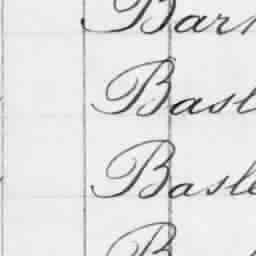 Barn
Basl
Basle
B